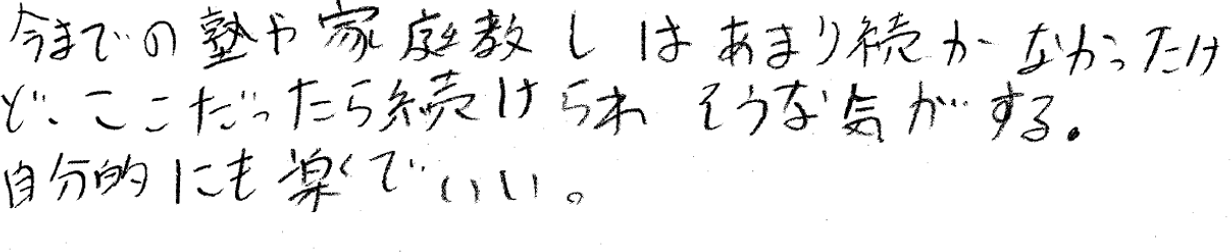 今までの塾や家庭教しはあまり続かなかったけ
ど、ここだったら続けられそうな気がする。
自分的にも楽でいい。